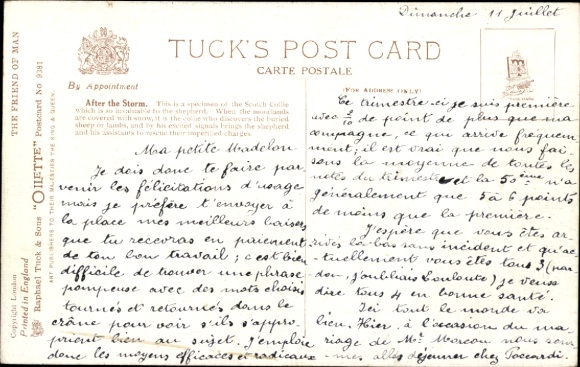 Dimanche 11 Juillet
TUCK'S POST CARD
CARTE POSTALE
By Appointment
(FOR ADDRESS ONLY)
After the Storm. This is a specimen of the Scotch Collie
which is so invaluable to the shepherd. When the moorlands
are covered with snow, it is the collie who discovers the buried
sheep or lambs, and by his excited signals brings the shepherd
and his assistants to rescue their imperilled charges.
THE FRIEND OF MAN
Raphael Tuck & Sons "OILETTE" Postcard No 9381
ART PUBLISHERS TO THEIR MAJESTIES THE KING & QUEEN.
Copyright London
Printed in England
Ma petite Madelon
Je dois donc te faire par-
venir les félicitations d'usage
mais je préfère t'envoyer à
la place mes meilleurs baisers
que tu recevras en paiement
de ton bon travail; c'est bien
difficile de trouver une phrase
pompeuse avec des mots choisis
tournés et retournés dans le
crâne pour voir s'ils s'appro-
prient bien au sujet. J'emploie
donc les moyens efficaces et radicaux
Ce trimestre-ci je suis première
avec de point de plus que ma
compagne, ce qui arrive fréquem-
ment; il est vrai que nous fai-
sons la moyenne de toutes les
notes du trimestre et la 50ème n'a
généralement que 5 à 6 points
de moins que la première.
J'espère que vous êtes ar-
rivés là-bas sans incident et qu'ac-
tuellement vous êtes tous 3 (par-
don, j'oubliais Louloute) je veux
dire tous 4 en bonne santé.
Ici tout le monde va
bien. Hier, à l'occasion du ma-
riage de Mr. Marcou nous som-
mes allés déjeuner chez Poccardi.